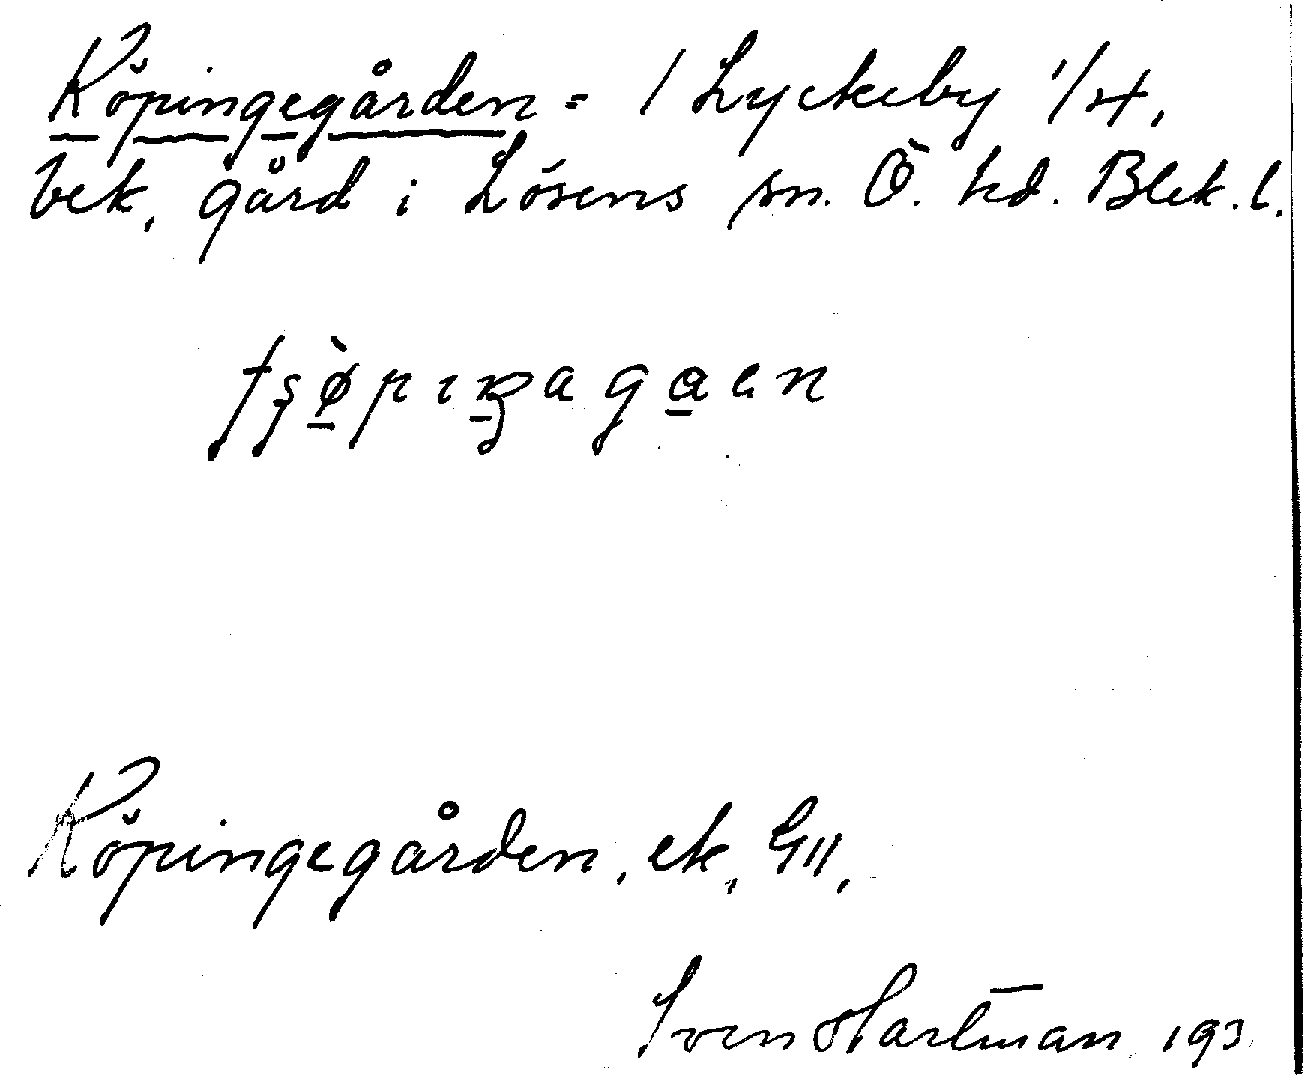 Köpingegården = 1 Lyckeby 1/4,
bek. gård i Lösens sn. Ö. hd. Blek. l.
Köpingegården, ek,
Sven Hartman 193